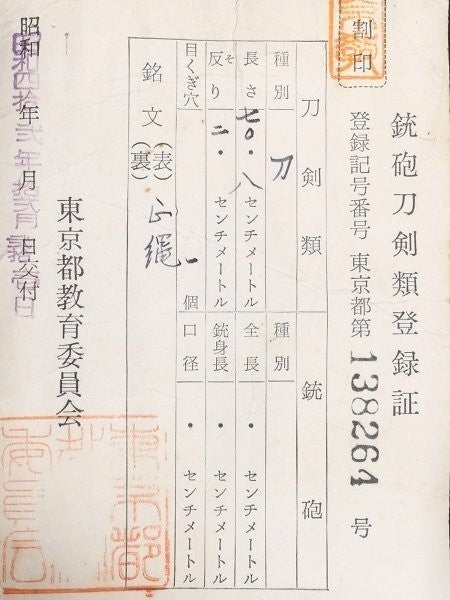 割印
銃砲刀剣類登録証
登録記号番号 東京都第 138264 号
刀剣類
銃砲
種別 刀
種別
長さ 七〇・八 センチメートル
全長 ・ センチメートル
反り そ 二・ センチメートル
銃身長 ・ センチメートル
目くぎ穴 一 個
口径 ・ センチメートル
銘文 (表) 正縄
(裏)
東京都教育委員会
昭和 年 月 日交付
昭和四拾弐年
東京都
委員会